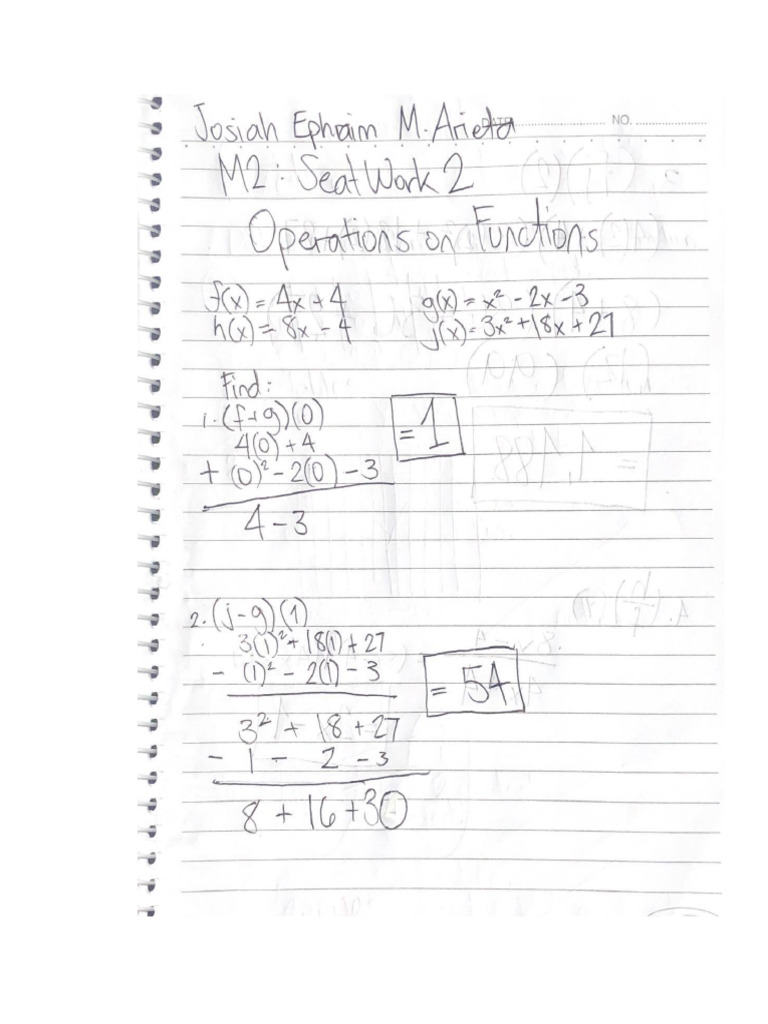 Josiah Ephraim M. Arieta
DATE NO.
M2: SeatWork 2
Operations on Functions
f(x) = 4x + 4 g(x) = x² - 2x - 3
h(x) = 8x - 4 j(x) = 3x² + 18x + 27
Find:
1. (f+g)(0) = 1
4(0) + 4
+ (0)² - 2(0) - 3
4 - 3
2. (j-g)(1)
3(1)² + 18(1) + 27
- (1)² - 2(1) - 3 = 54
3² + 18 + 27
- 1 - 2 - 3
8 + 16 + 30